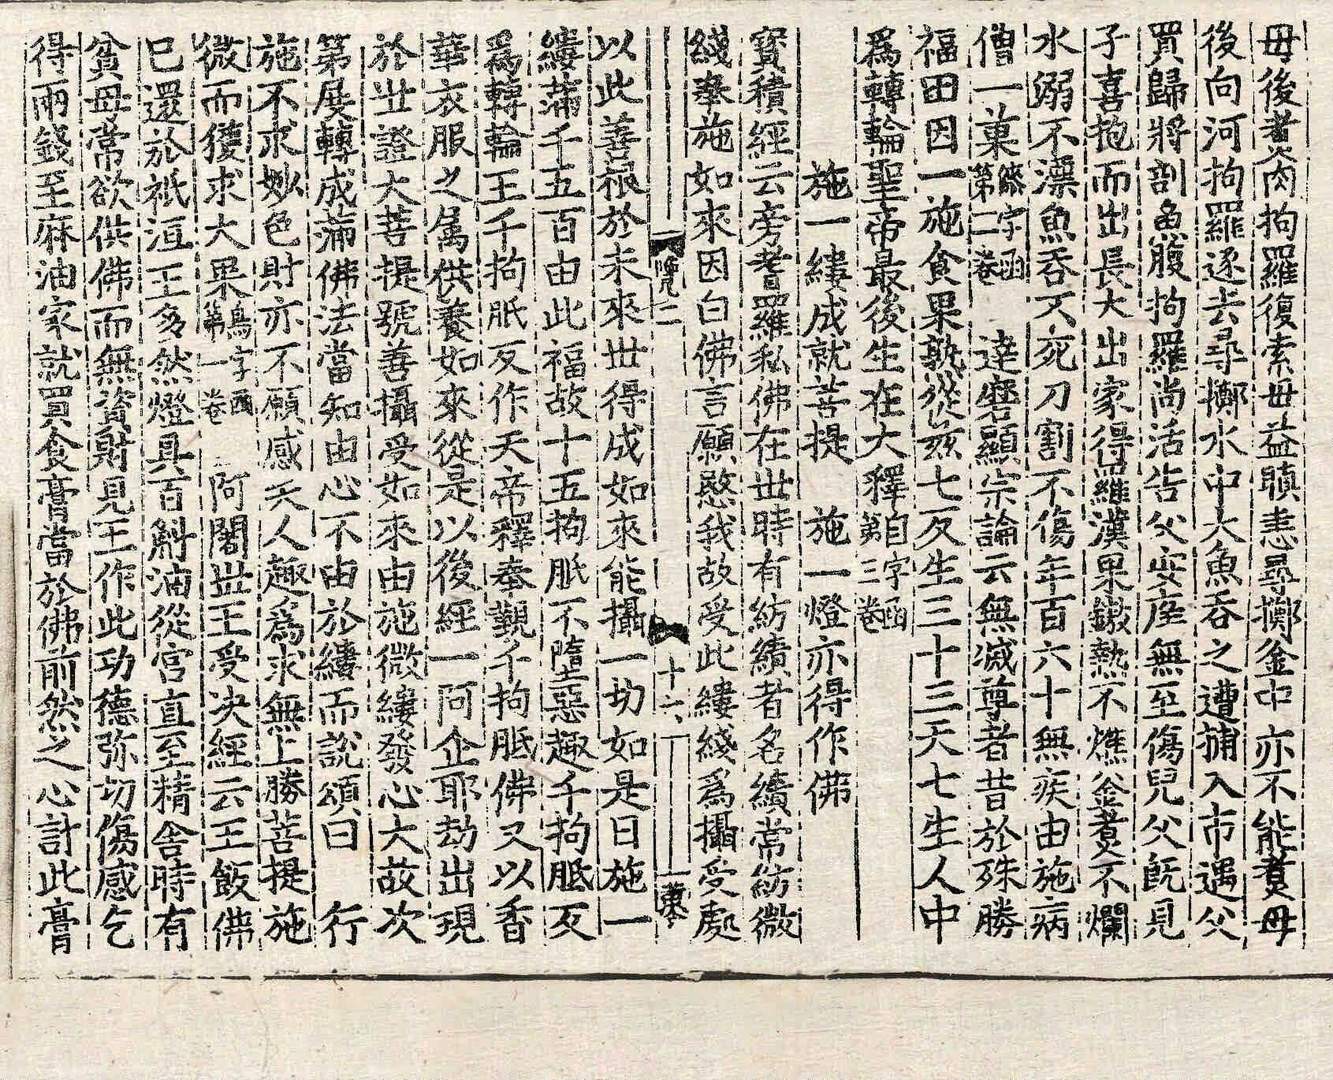 母後煮肉拘羅復索母益瞋恚尋擲釜中亦不能煮母
後向河拘羅逐去尋擲水中大魚吞之遭捕入市遇父
買歸將剖魚腹拘羅尚活告父安庠無至傷兒父既見
子喜抱而出長大出家得羅漢果鏊熱不燋釜煑不爛
水溺不㵎魚吞不死刀割不傷年百六十無疾由施病
僧一菓 餘字函第二卷 達磨顯宗論云無滅尊者昔於殊勝
福田因一施食果熟從茲七反生三十三天七生人中
為轉輪聖帝最後生在大釋 自字函第三卷
施一縷成就菩提 施一燈亦得作佛
寶積經云旁耆羅私佛在世時有紡績者名績常紡微
綫奉施如來因白佛言願愍我故受此縷綫為攝受處
覽二 十六 東本
以此善根於未來世得成如來能攝一切如是日施一
縷滿千五百由此福故十五拘胝不墮惡趣千拘胝反
為轉輪王千拘胝反作天帝釋奉覲千拘胝佛又以香
華衣服之属供養如來從是以後經一阿企耶劫出現
於世證大菩提號善攝受如來由施微縷發心大故次
第展轉成滿佛法當知由心不由於縷而說頌曰 行
施不求妙色財亦不願感天人趣為求無上勝菩提施
微而獲求大果 鳥字函第一卷 阿闍世王受决經云王飯佛
已還於祇洹王多然燈具百斛油從宮直至精舎時有
貧母常欲供佛而無資財見王作此功德弥切傷感乞
得兩錢至麻油家就買食膏當於佛前然之心計此膏